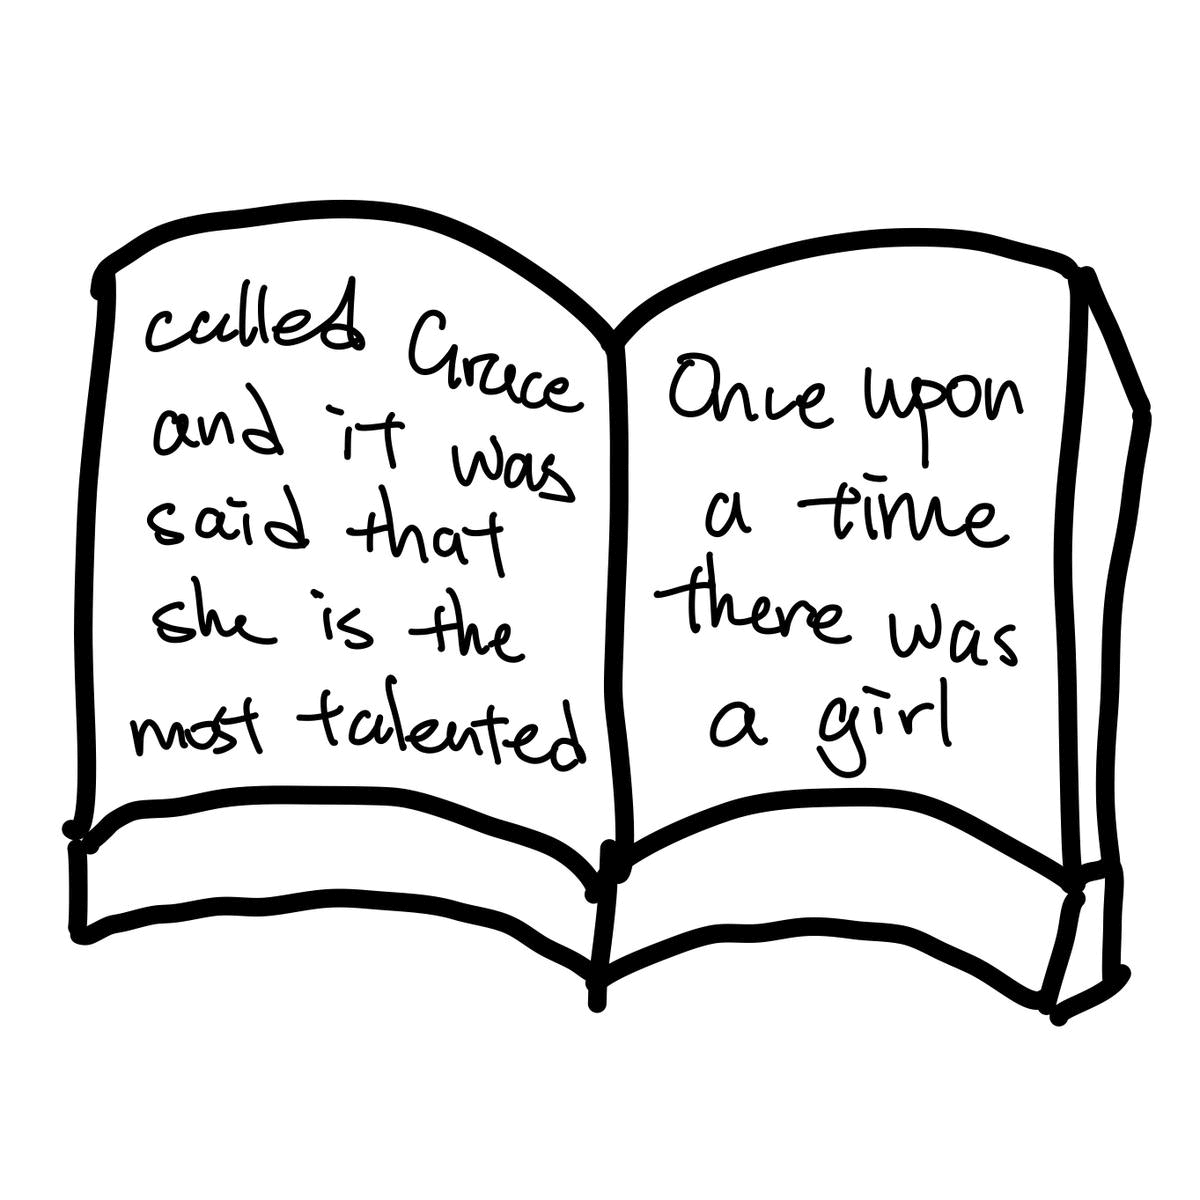 called Grace
and it was
said that
she is the
most talented
Once upon
a time
there was
a girl